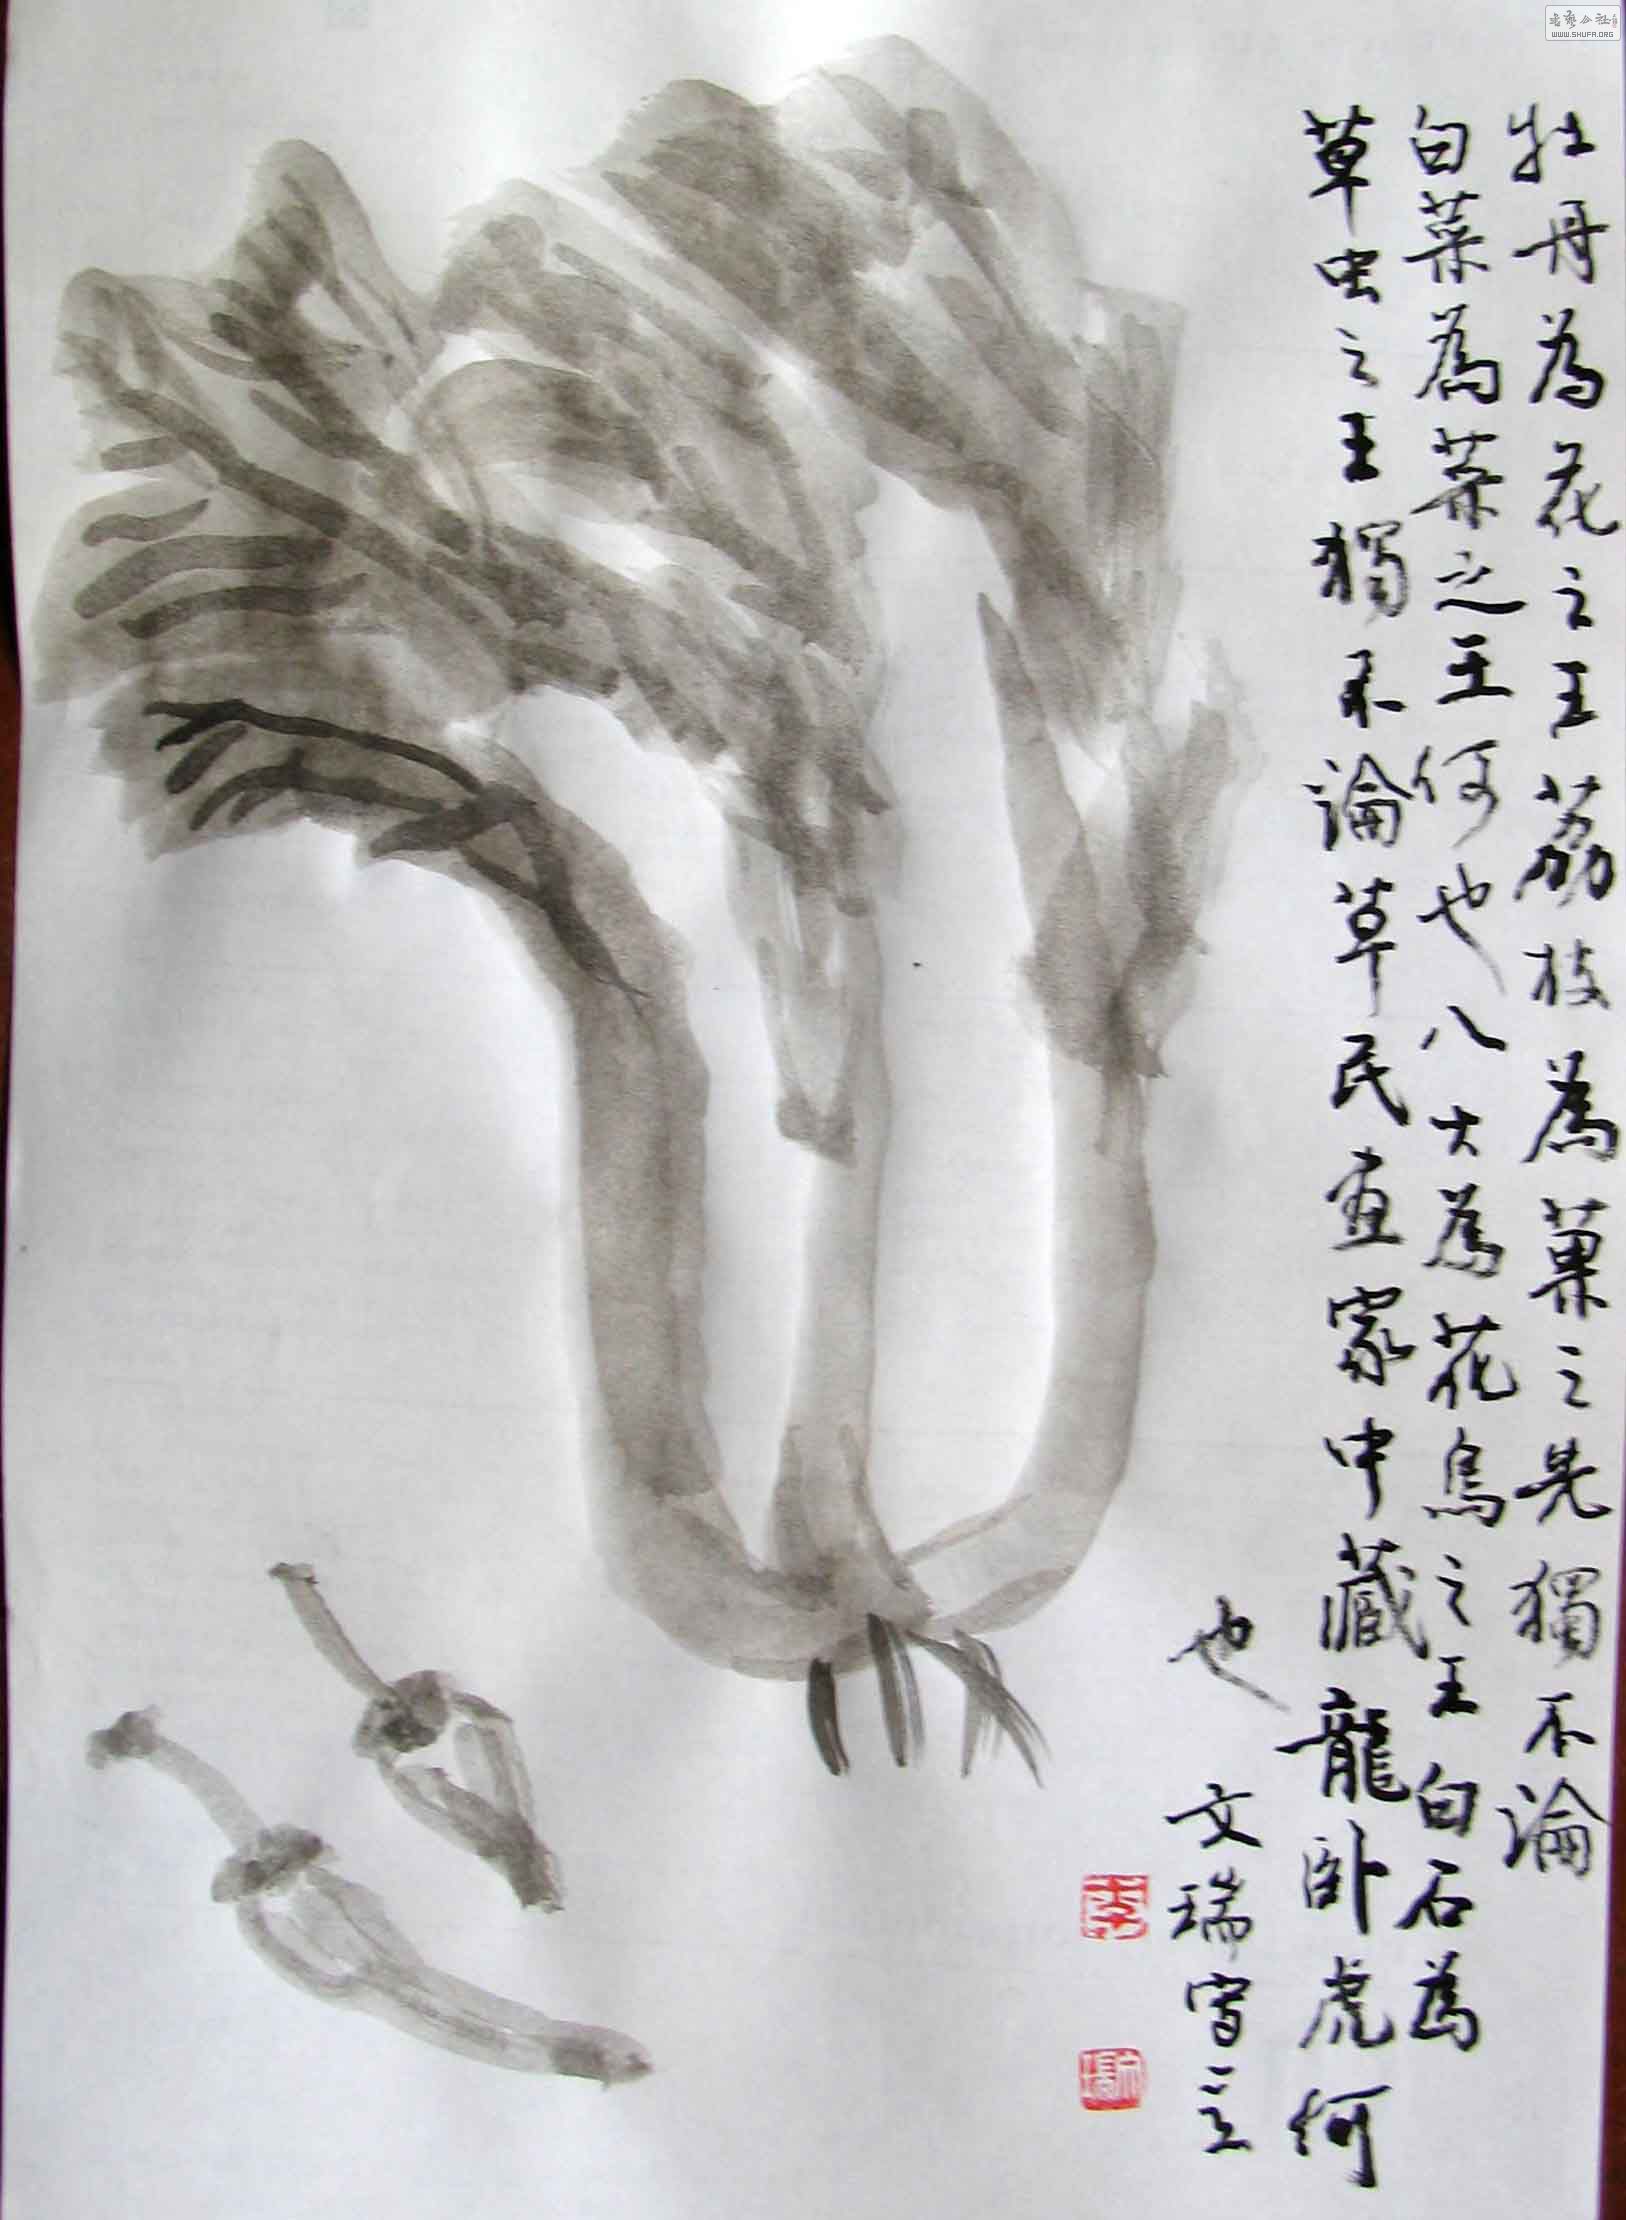 牡丹為花之王荔枝為菓之先獨不論
白菜為菜之王何也八大為花鳥之王白石為
草虫之王獨不論草民画家中藏龍卧虎何
也
文瑞写之
李
WWW.SHUFA.ORG